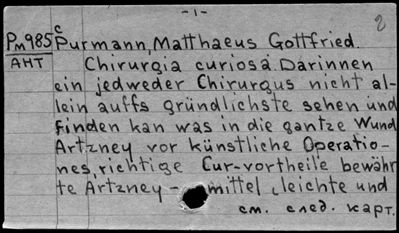 -1-
2
Pм985 c Purmann, Matthaeus Gottfried.
АНТ Chirurgia curiosa. Darinnen
ein jedweder Chirurgus nicht al-
lein auffs gründlichste sehen und
finden kan was in die gantze Wund
Artzney vor künstliche Operatio-
nes, richtige Cur-vortheile bewähr
te Artzney-mittel, leichte und
см. след. карт.